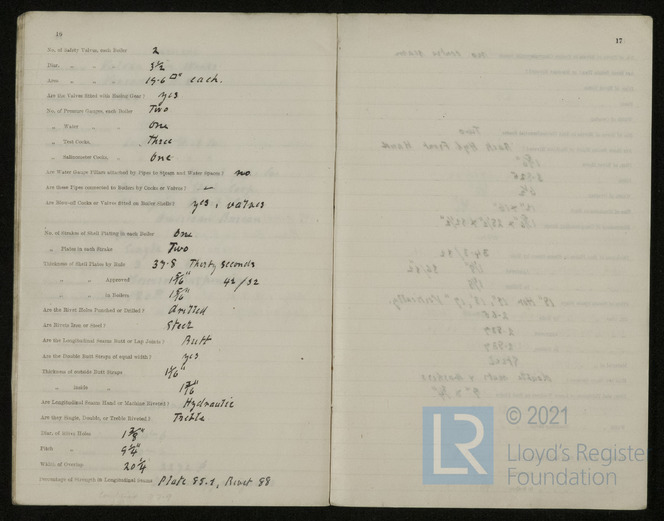 16
No. of Safety Valves, each Boiler 2
Diar. „ „ 3½
Area „ „ 15·6 □" each.
Are the Valves fitted with Easing Gear? yes
No. of Pressure Gauges, each Boiler Two
„ Water „ „ One
„ Test Cocks, „ Three
„ Salinometer Cocks, „ One
Are Water Gauge Pillars attached by Pipes to Steam and Water Spaces? no
Are these Pipes connected to Boilers by Cocks or Valves? —
Are Blow-off Cocks or Valves fitted on Boiler Shells? yes, valves
No. of Strakes of Shell Plating in each Boiler One
„ Plates in each Strake Two
Thickness of Shell Plates by Rule 39·8 Thirty seconds
„ „ Approved 1 5/16" 42/32
„ „ in Boilers 1 5/16"
Are the Rivet Holes Punched or Drilled? drilled
Are Rivets Iron or Steel? Steel
Are the Longitudinal Seams Butt or Lap Joints? Butt
Are the Double Butt Straps of equal width? yes
Thickness of outside Butt Straps
„ inside „
Are Longitudinal Seams Hand or Machine Riveted? Hydraulic
Are they Single, Double, or Treble Riveted? Treble
Diar. of Rivet Holes
Pitch 9¼"
Width of Overlap 20¼
Percentage of Strength in Longitudinal Seams Plate 85.1, Rivet 88
17
© 2021
LR
Lloyd's Register
Foundation